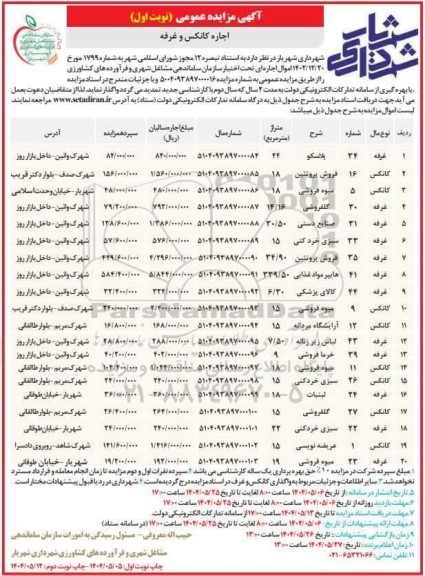 آگهی مزایده عمومی (نوبت اول)
اجاره کانکس و غرفه
شهرداری شهریار
شهرداری شهریار در نظر دارد به استناد تبصره ۱۲ مجوز شورای اسلامی شهر به شماره ۱۷۹۹ مورخ
۱۴۰۲/۱۲/۲۰ اموال اجاره‌ای تحت اختیار سازمان ساماندهی مشاغل شهری و فرآورده های کشاورزی
را از طریق مزایده عمومی به شماره مزایده ۵۰۰۴۰۹۳۸۹۷۰۰۰۰۱۶ و با جزئیات مندرج در اسناد مزایده
، با بهره گیری از سامانه تدارکات الکترونیکی دولت به مدت ۲ سال که سال دوم با کارشناسی جدید تمدید می گردد واگذار نماید. لذا از متقاضیان دعوت بعمل
می آید جهت دریافت اسناد مزایده به شرح جدول ذیل به درگاه سامانه تدارکات الکترونیکی دولت (ستاد) به آدرس www.setadiran.ir مراجعه نمایند.
لیست اموال مزایده به شرح جدول ذیل می باشد:
ردیف نوع مال شماره شرح متراژ (مترمربع) شماره مال مبلغ اجاره سالیان (ریال) سپرده مزایده آدرس
۱ غرفه ۳۴ پلاسکو ۴۴ ۵۱۰۴۰۹۳۸۹۷۰۰۰۰۸۴ ۸۴۰/۰۰۰/۰۰۰ ۸۴/۰۰۰/۰۰۰ شهرک وائین - داخل بازار روز
۲ کانکس ۱۶ فروش پروتئین ۱۸ ۵۱۰۴۰۹۳۸۹۷۰۰۰۰۸۵ ۱/۵۶۰/۰۰۰/۰۰۰ ۱۵۶/۰۰۰/۰۰۰ شهرک صدف - بلوار دکتر قریب
۳ کانکس ۵ میوه فروشی ۱۸ ۵۱۰۴۰۹۳۸۹۷۰۰۰۰۸۶ ۴۸۰/۰۰۰/۰۰۰ ۴۸/۰۰۰/۰۰۰ شهریار - خیابان وحدت اسلامی
۴ غرفه ۳۰ گلفروشی ۱۴/۱۶ ۵۱۰۴۰۹۳۸۹۷۰۰۰۰۸۷ ۷۹۲/۰۰۰/۰۰۰ ۷۹/۲۰۰/۰۰۰ شهرک وائین - داخل بازار روز
۵ غرفه ۳۱ صنایع دستی ۳۰/۵۰ ۵۱۰۴۰۹۳۸۹۷۰۰۰۰۸۸ ۱/۳۸۶/۰۰۰/۰۰۰ ۱۳۸/۶۰۰/۰۰۰ شهرک وائین - داخل بازار روز
۶ غرفه ۳۳ سبزی خرد کنی ۱۵ ۵۱۰۴۰۹۳۸۹۷۰۰۰۰۸۹ ۵۷۶/۰۰۰/۰۰۰ ۵۷/۶۰۰/۰۰۰ شهرک وائین - داخل بازار روز
۷ غرفه ۳۵ فروش پروتئین ۳۴/۹۰ ۵۱۰۴۰۹۳۸۹۷۰۰۰۰۹۰ ۴/۴۹۶/۰۰۰/۰۰۰ ۴۴۹/۶۰۰/۰۰۰ شهرک وائین - داخل بازار روز
۸ غرفه ۴۱ هایپر مواد غذایی ۲۳۹/۵۰ ۵۱۰۴۰۹۳۸۹۷۰۰۰۰۹۱ ۵/۸۴۴/۰۰۰/۰۰۰ ۵۸۴/۴۰۰/۰۰۰ شهرک وائین - داخل بازار روز
۹ غرفه ۴۴ کالای پزشکی ۶/۳۰ ۵۱۰۴۰۹۳۸۹۷۰۰۰۰۹۲ ۳۲۴/۰۰۰/۰۰۰ ۳۲/۴۰۰/۰۰۰ شهرک وائین - داخل بازار روز
۱۰ کانکس ۹ میوه فروشی ۱۵ ۵۱۰۴۰۹۳۸۹۷۰۰۰۰۹۳ ۲۴۰/۰۰۰/۰۰۰ شهرک صدف - بلوار دکتر قریب
۱۱ کانکس ۱۲ آرایشگاه مردانه ۱۵ ۵۱۰۴۰۹۳۸۹۷۰۰۰۰۹۴ ۱۶۸/۰۰۰/۰۰۰ ۱۶/۸۰۰/۰۰۰ شهرک مریم - بلوار طالقانی
۱۲ غرفه ۴۳ لباس زیر زنانه ۷/۵۰ ۵۱۰۴۰۹۳۸۹۷۰۰۰۰۹۵ ۲۸۸/۰۰۰/۰۰۰ ۲۸/۸۰۰/۰۰۰ شهرک وائین - داخل بازار روز
۱۳ غرفه ۳۹ خرما فروشی ۹ ۴۰۲/۰۰۰/۰۰۰ ۴۰/۲۰۰/۰۰۰ شهرک وائین - داخل بازار روز
۱۴ کانکس ۱۱ میوه فروشی ۱۸ شهرک مریم - بلوار طالقانی
۱۵ کانکس ۲۶ سبزی خردکنی ۱۵ ۲۴۰/۰۰۰/۰۰۰ ۲۴/۰۰۰/۰۰۰ شهریار - خیابان طوقانی
۱۶ غرفه ۳۴ لبنیات ۱۵ ۳۶۰/۰۰۰/۰۰۰ ۳۶/۰۰۰/۰۰۰ شهریار - خیابان طوقانی
۱۷ کانکس ۲۷ گلفروشی ۱۵ ۲۶۴/۰۰۰/۰۰۰ ۲۶/۴۰۰/۰۰۰ شهرک مریم - بلوار طالقانی
۱۸ غرفه ۲۲ سبزی خردکنی ۲۲ ۲۴۰/۰۰۰/۰۰۰ ۲۴/۰۰۰/۰۰۰ شهریار - خیابان طوقانی
۱۹ کانکس ۱ عریضه نویسی ۱۵ ۱/۴۱۶/۰۰۰/۰۰۰ ۱۴۱/۶۰۰/۰۰۰ شهرک شاهد - روبروی دادسرا
۲۰ غرفه ۱۹ میوه فروشی ۹ ۵۱۰۴۰۹۳۸۹۷۰۰۰۱۰۳ ۱۹۲/۰۰۰/۰۰۰ ۱۹/۲۰۰/۰۰۰ شهریار - خیابان طوقانی
۱. مبلغ سپرده شرکت در مزایده ۱۰٪ حق بهره برداری یک ساله کارشناسی می باشد ۲. سپرده نفرات اول و دوم مزایده تا زمان انجام معامله و قرارداد مسترد
نخواهد شد. ۳. سایر اطلاعات و جزئیات مربوط به واگذاری کانکس و غرف در اسناد مزایده درج گردیده است. ۴. شهرداری در رد یا قبول پیشنهادات مختار است.
۵. تاریخ انتشار در سامانه : از تاریخ ۱۴۰۴/۰۵/۰۶ ساعت ۸:۰۰ لغایت تا تاریخ ۱۴۰۴/۰۵/۲۵ ساعت ۱۷:۰۰
۶. مهلت بازدید روزانه از تاریخ ۱۴۰۴/۰۵/۰۶ ساعت ۸:۰۰ لغایت تا تاریخ ۱۴۰۴/۰۵/۲۵ ساعت ۱۷:۰۰
۷. مهلت دریافت اسناد مزایده تا تاریخ ۱۴۰۴/۰۵/۱۳ ساعت ۱۷:۰۰ از سامانه تدارکات الکترونیکی دولت.
۸. مهلت ارائه پیشنهادات از تاریخ ۱۴۰۴/۰۵/۰۶ ساعت ۸:۰۰ تا تاریخ ۱۴۰۴/۰۵/۲۵ ساعت ۱۷:۰۰ (در سامانه ستاد)
۹. زمان بازگشایی پیشنهادات : تاریخ ۱۴۰۴/۰۵/۲۶ ساعت ۱۳:۰۰
۱۱. تلفن تماس : ۶۵۲۳۱۰۶۶-۰۲۱
حبیب اله معروفی - مسئول رسیدگی به امورات سازمان ساماندهی
مشاغل شهری و فرآورده های کشاورزی شهرداری شهریار
چاپ نوبت اول : ۱۴۰۴/۰۵/۰۵ - چاپ نوبت دوم : ۱۴۰۴/۰۵/۱۳